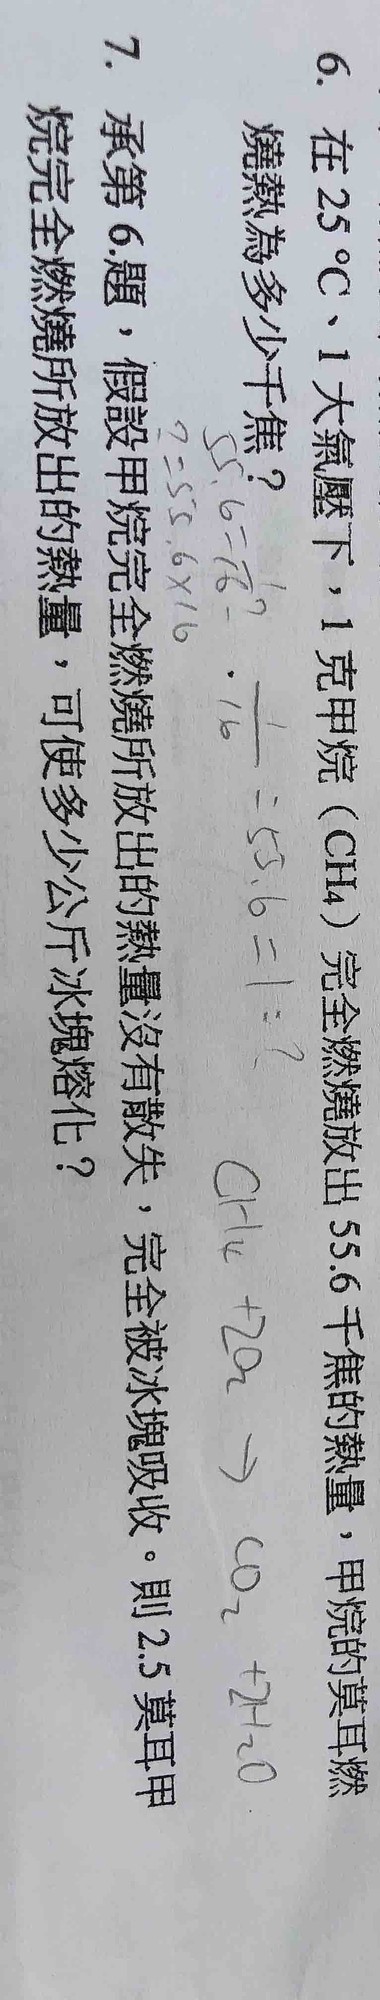 6. 在 25 ℃、1 大氣壓下，1 克甲烷（CH₄）完全燃燒放出 55.6 千焦的熱量，甲烷的莫耳燃
燒熱為多少千焦？
1/16 : 55.6 = 1 : ?
CH₄ + 2O₂ → CO₂ + 2H₂O
? = 55.6 × 16
7. 承第 6.題，假設甲烷完全燃燒所放出的熱量沒有散失，完全被冰塊吸收。則 2.5 莫耳甲
烷完全燃燒所放出的熱量，可使多少公斤冰塊熔化？